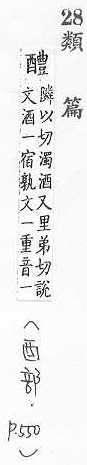 28
類篇
醴
隣以切濁酒又里弟切說
文酒一宿孰文一重音一
(酉部. p.550)